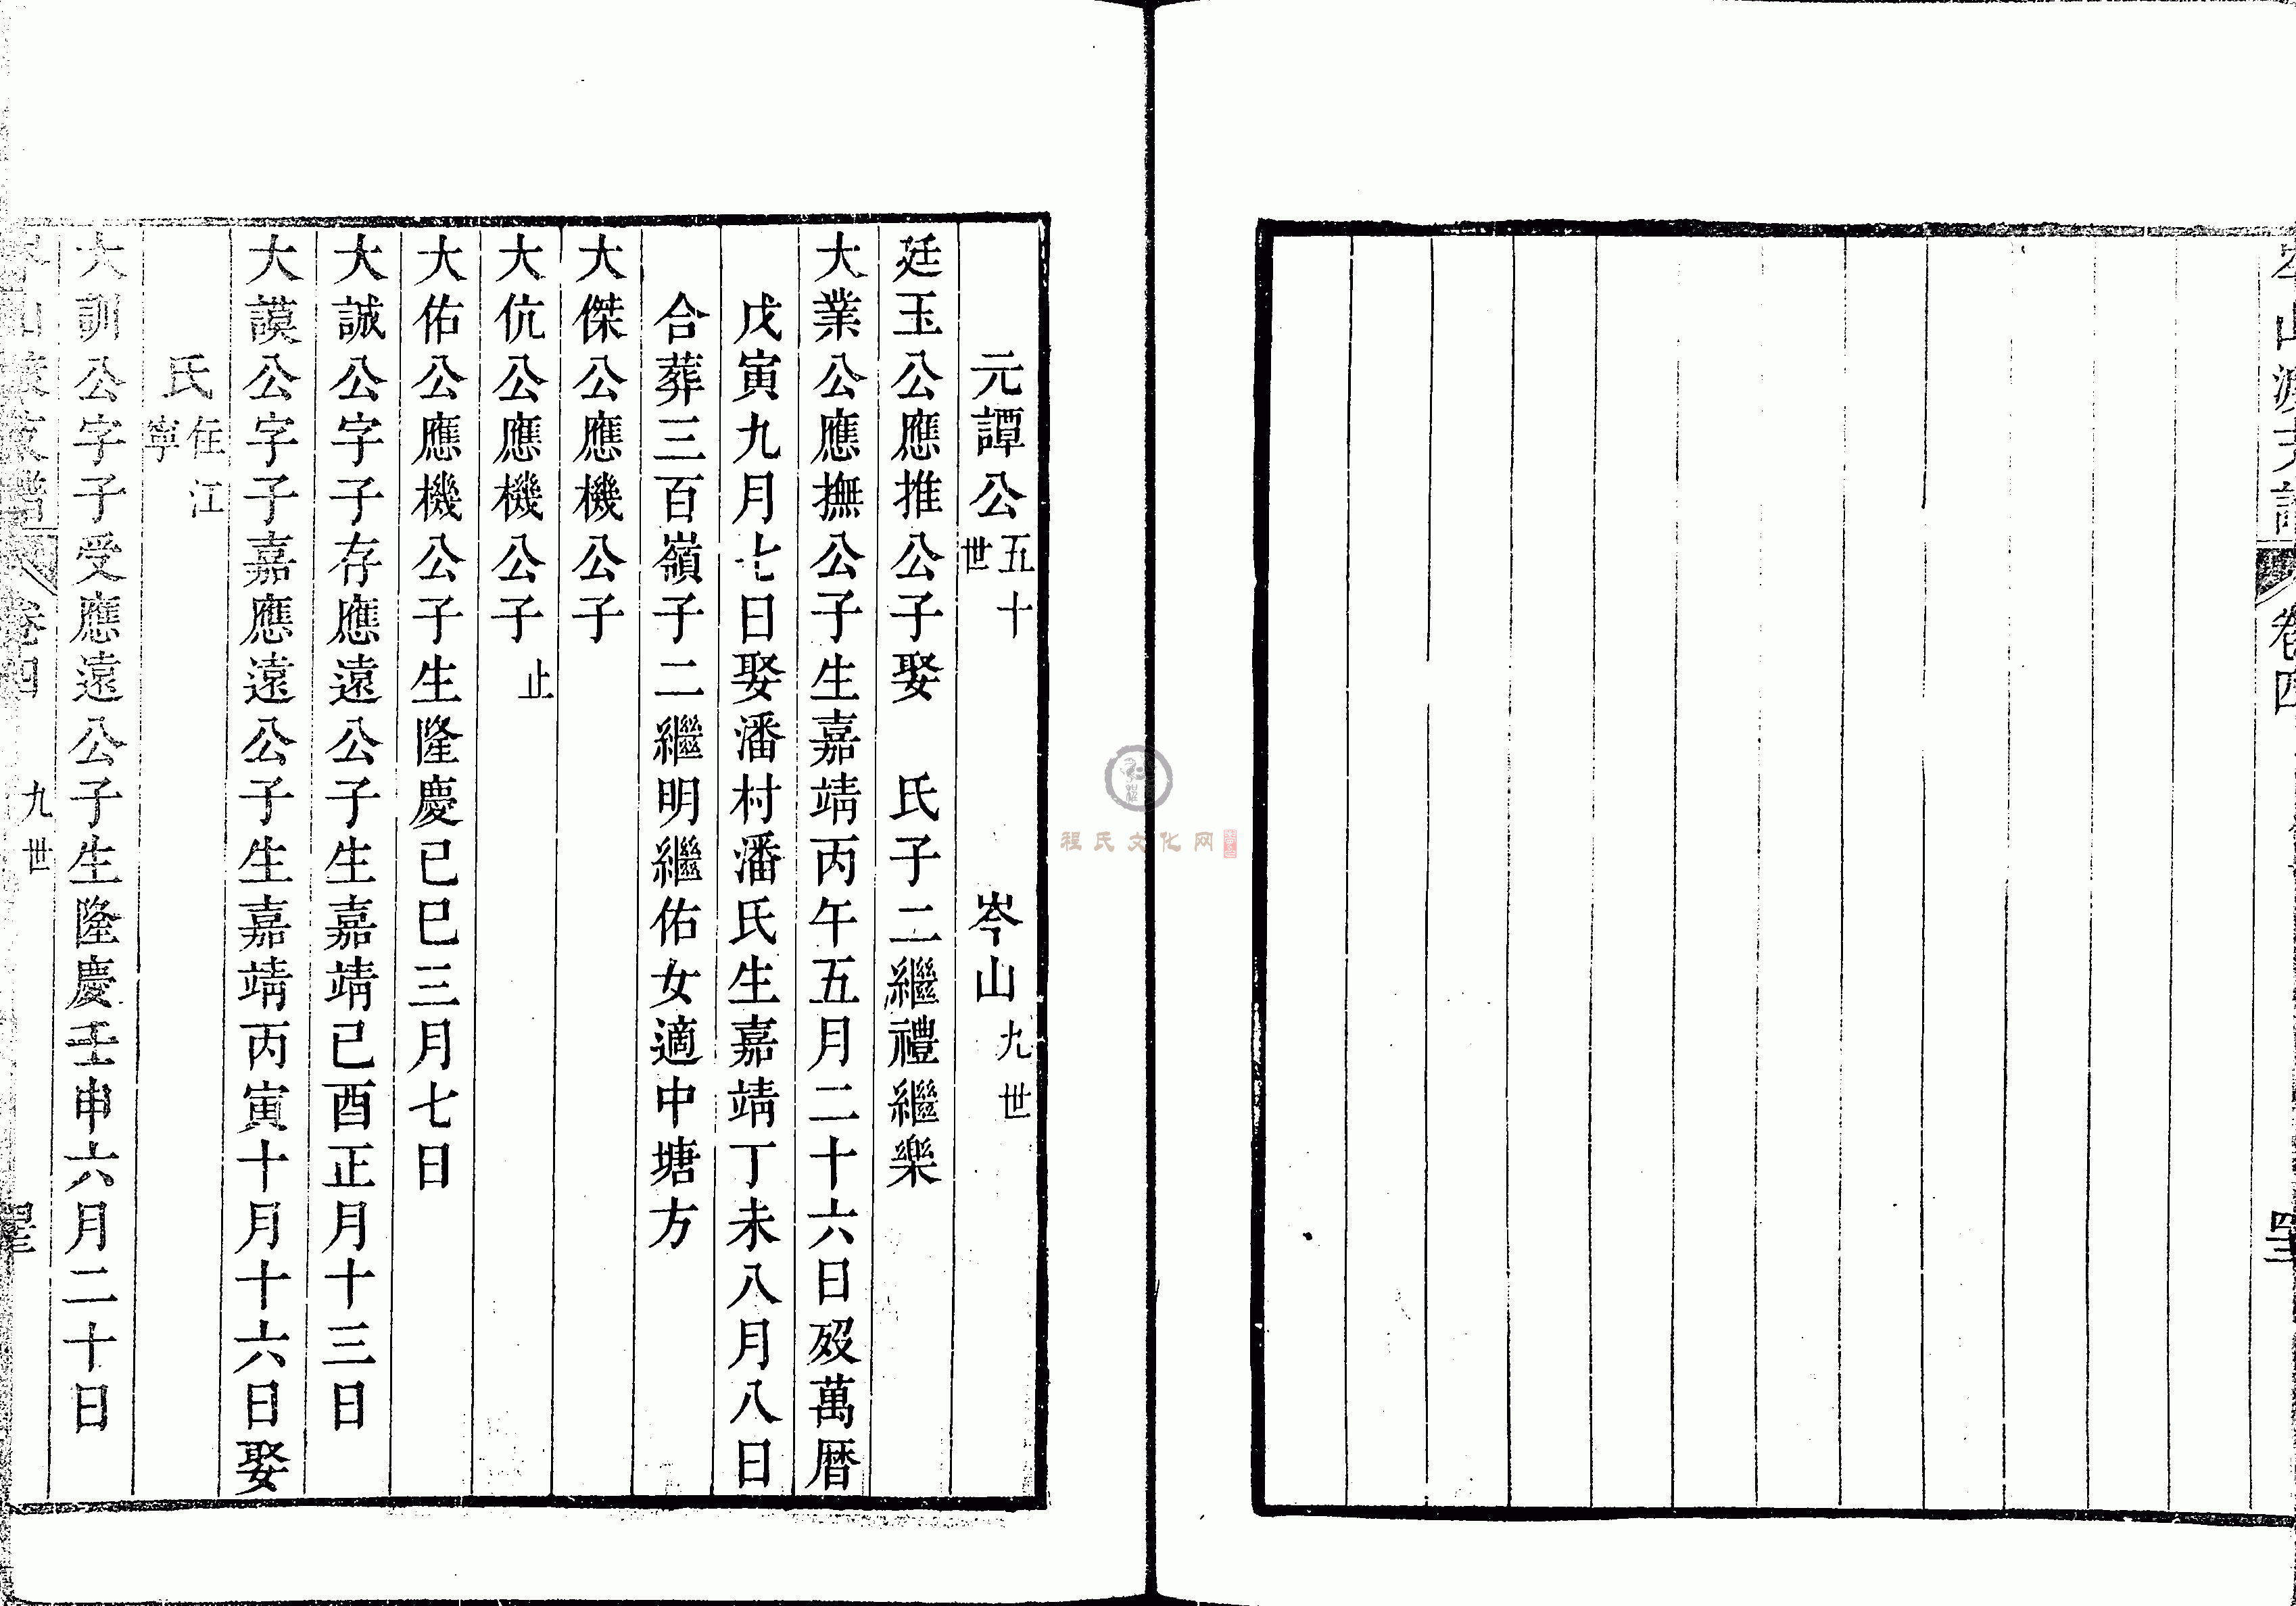 山渡支譜 卷四
元譚公五十世 岑山九世
廷玉公應推公子娶 氏子二繼禮繼樂
大業公應撫公子生嘉靖丙午五月二十六日殁萬曆
戊寅九月七日娶潘村潘氏生嘉靖丁未八月八日
合葬三百嶺子二繼明繼佑女適中塘方
大傑公應機公子
大伉公應機公子止
大佑公應機公子生隆慶已巳三月七日
大誠公字子存應遠公子生嘉靖已酉正月十三日
大謨公字子嘉應遠公子生嘉靖丙寅十月十六日娶
氏任江寧
大訓公字子受應遠公子生隆慶壬申六月二十日
山渡支譜 卷四 九世
程氏文化网